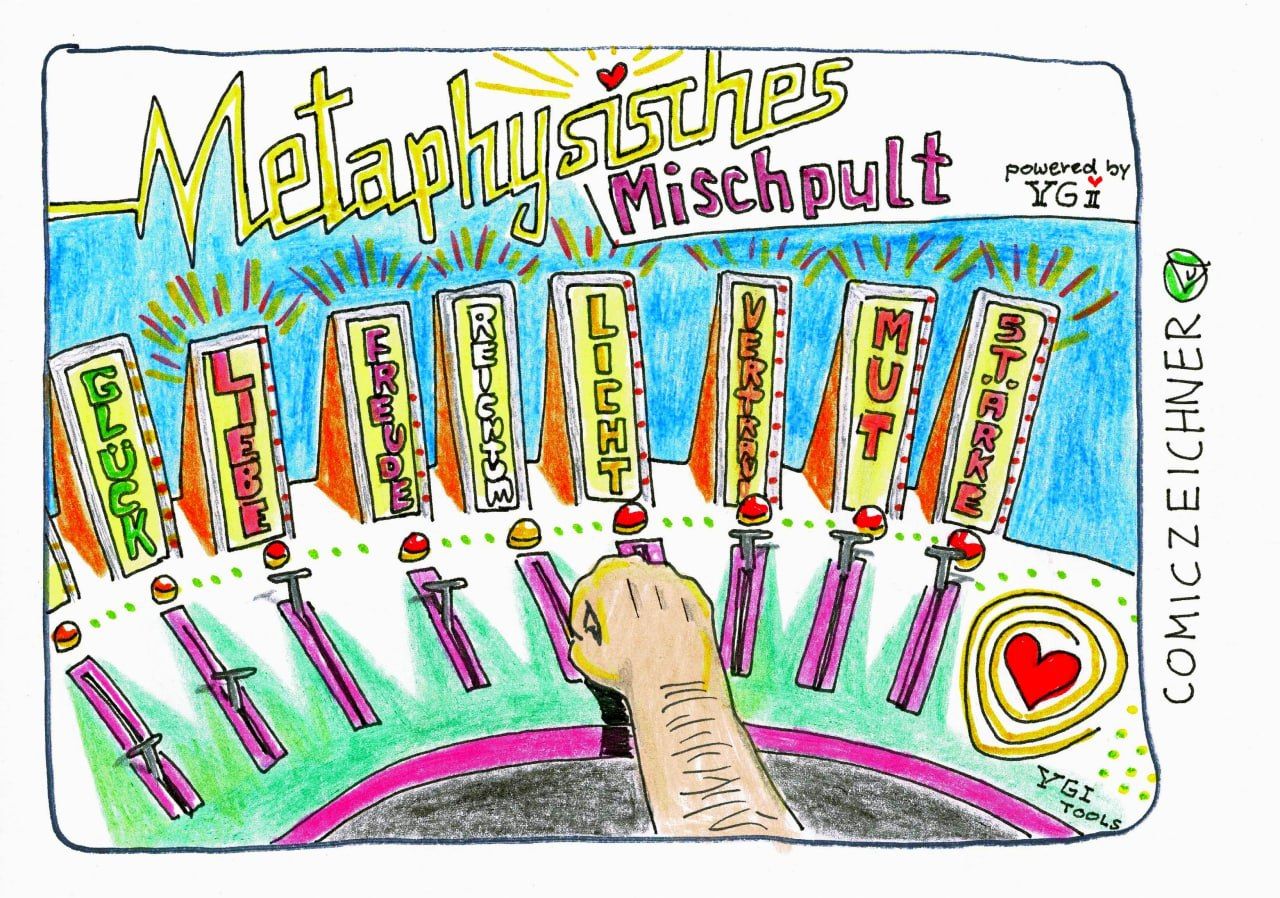 Metaphysisches
Mischpult
powered by
YGI
GLÜCK
LIEBE
FREUDE
REICHTUM
LICHT
VERTRAUN
MUT
STÄRKE
YGI
TOOLS
COMICZEICHNER